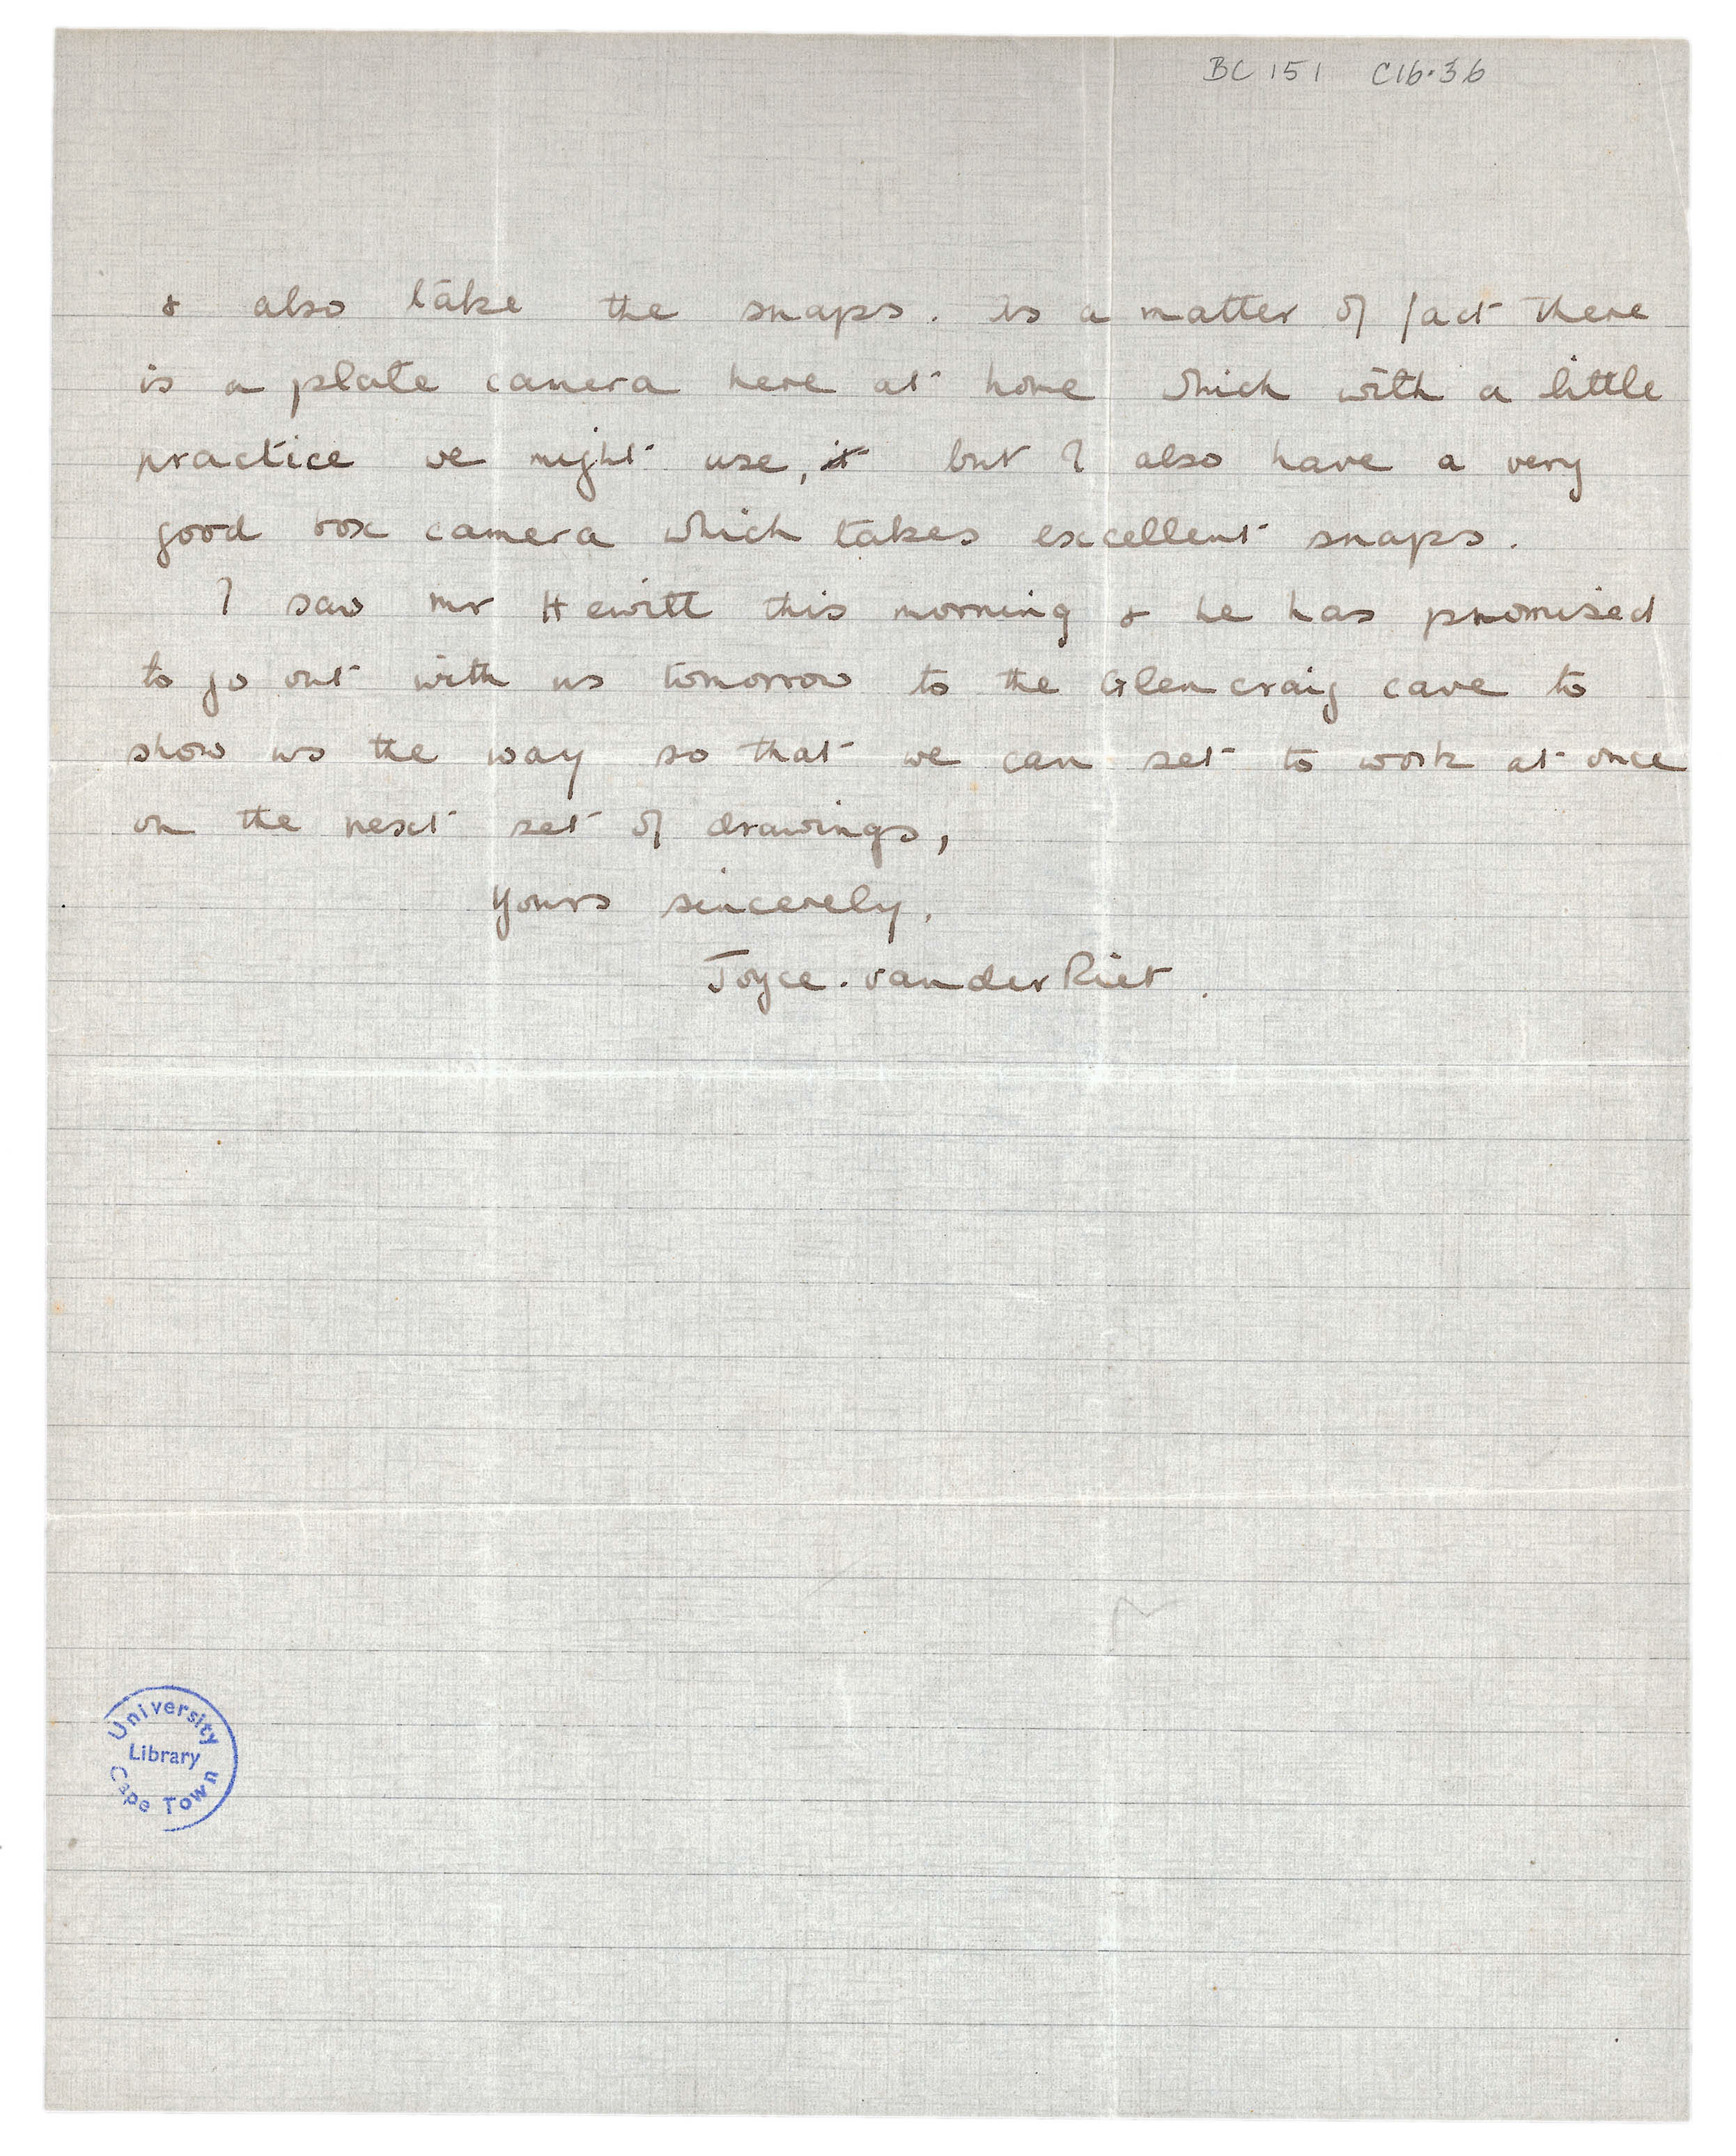 BC 151 C16.36
& also take the snaps. As a matter of fact there
is a plate camera here at home which with a little
practice we might use, it but I also have a very
good box camera which takes excellent snaps.
I saw Mr Hewitt this morning & he has promised
to go out with us tomorrow to the Glencraig cave to
show us the way so that we can set to work at once
on the next set of drawings,
Yours sincerely,
Joyce. van der Riet.
University
Library
Cape Town